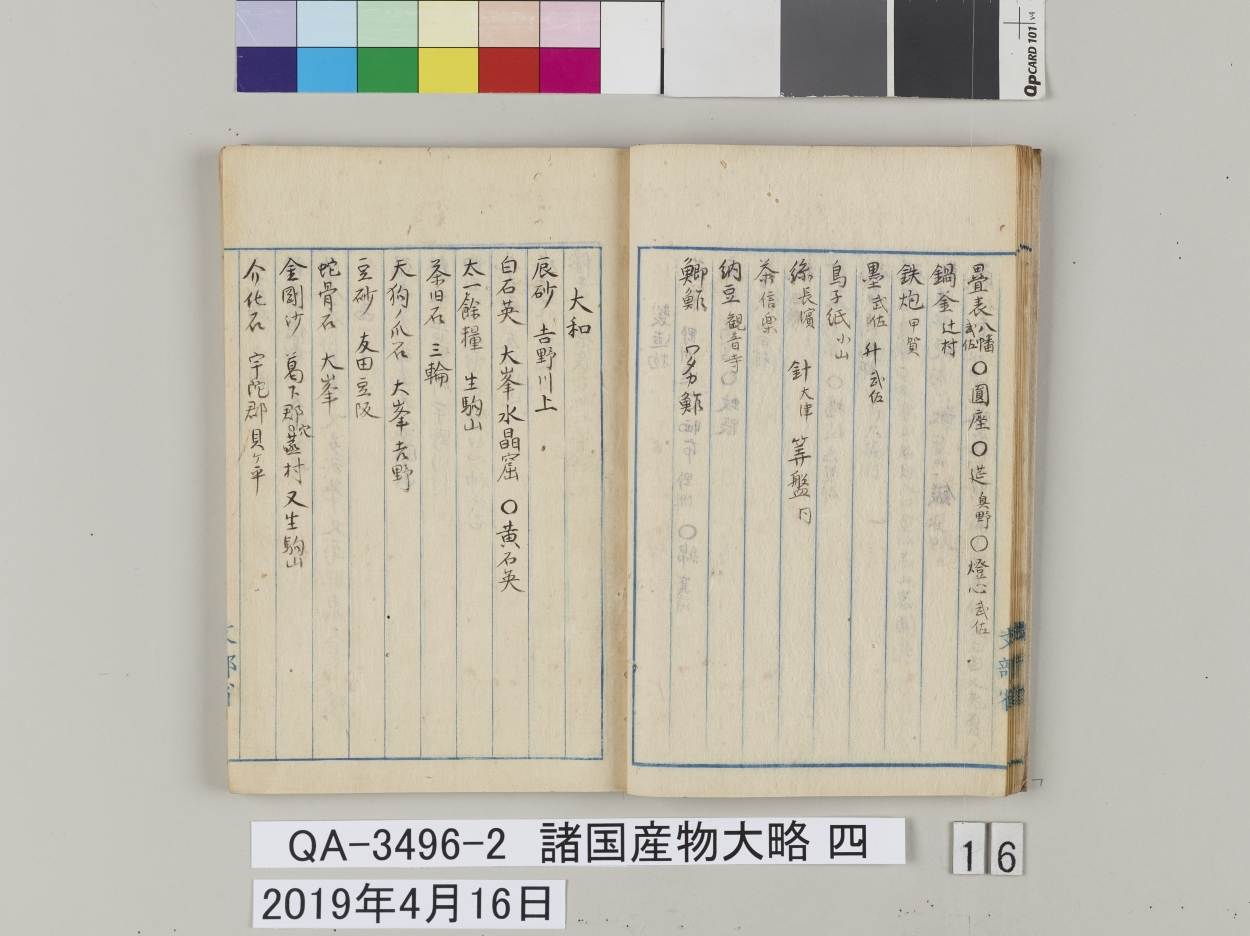 QPCARD 101 v4
畳表 八幡 武佐 〇 圓座 〇 莚 奥野 〇 燈心 武佐
鍋釜 辻村
鉄炮 甲賀
墨 武佐 升 武佐
鳥子紙 小山
絲 長濱 針 大津 筭盤 同
茶 信楽
納豆 観音寺
鯽鮓 ワタカ鮓
文部省
大和
辰砂 吉野川上
白石英 大峯水晶窟 〇 黄石英
太一餘糧 生駒山
茶臼石 三輪
天狗ノ爪石 大峯 吉野
豆砂 友田 立坂
蛇骨石 大峯
金剛沙 葛下郡穴虫村 又生駒山
介化石 宇陀郡貝ヶ平
文部省
QA-3496-2 諸国産物大略 四
16
2019年4月16日